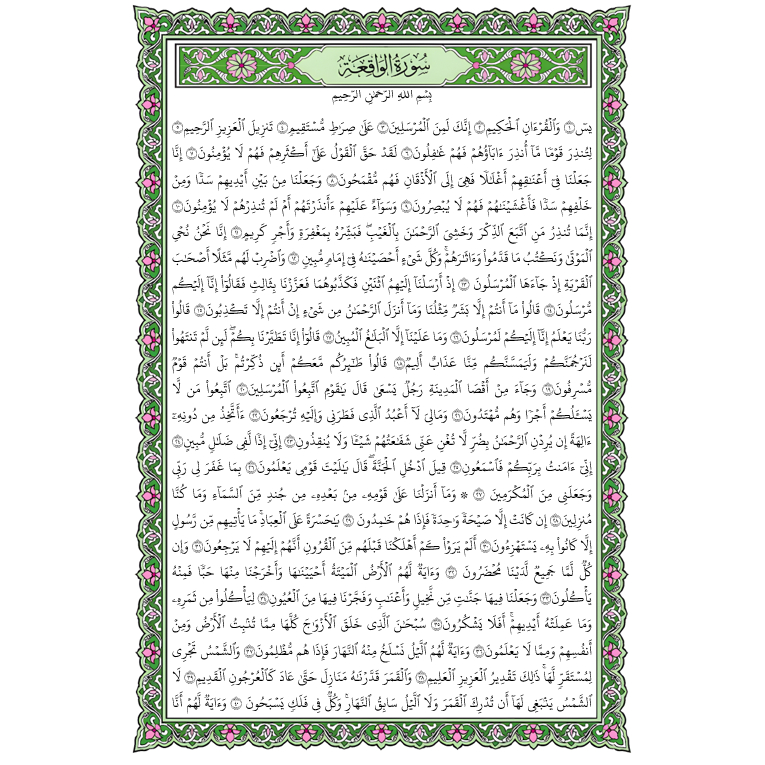 سُورَةُ الوَاقِعَة
بِسْمِ اللهِ الرَّحْمٰنِ الرَّحِيمِ
يسٓ ۝١ وَٱلْقُرْءَانِ ٱلْحَكِيمِ ۝٢ إِنَّكَ لَمِنَ ٱلْمُرْسَلِينَ ۝٣ عَلَىٰ صِرَٰطٍ مُّسْتَقِيمٍ ۝٤ تَنزِيلَ ٱلْعَزِيزِ ٱلرَّحِيمِ ۝٥
لِتُنذِرَ قَوْمًا مَّآ أُنذِرَ ءَابَآؤُهُمْ فَهُمْ غَٰفِلُونَ ۝٦ لَقَدْ حَقَّ ٱلْقَوْلُ عَلَىٰٓ أَكْثَرِهِمْ فَهُمْ لَا يُؤْمِنُونَ ۝٧ إِنَّا
جَعَلْنَا فِىٓ أَعْنَٰقِهِمْ أَغْلَٰلًا فَهِىَ إِلَى ٱلْأَذْقَانِ فَهُم مُّقْمَحُونَ ۝٨ وَجَعَلْنَا مِنۢ بَيْنِ أَيْدِيهِمْ سَدًّا وَمِنْ
خَلْفِهِمْ سَدًّا فَأَغْشَيْنَٰهُمْ فَهُمْ لَا يُبْصِرُونَ ۝٩ وَسَوَآءٌ عَلَيْهِمْ ءَأَنذَرْتَهُمْ أَمْ لَمْ تُنذِرْهُمْ لَا يُؤْمِنُونَ ۝١٠
إِنَّمَا تُنذِرُ مَنِ ٱتَّبَعَ ٱلذِّكْرَ وَخَشِىَ ٱلرَّحْمَٰنَ بِٱلْغَيْبِ ۖ فَبَشِّرْهُ بِمَغْفِرَةٍ وَأَجْرٍ كَرِيمٍ ۝١١ إِنَّا نَحْنُ نُحْىِ
ٱلْمَوْتَىٰ وَنَكْتُبُ مَا قَدَّمُوا۟ وَءَاثَٰرَهُمْ ۚ وَكُلَّ شَىْءٍ أَحْصَيْنَٰهُ فِىٓ إِمَامٍ مُّبِينٍ ۝١٢ وَٱضْرِبْ لَهُم مَّثَلًا أَصْحَٰبَ
ٱلْقَرْيَةِ إِذْ جَآءَهَا ٱلْمُرْسَلُونَ ۝١٣ إِذْ أَرْسَلْنَآ إِلَيْهِمُ ٱثْنَيْنِ فَكَذَّبُوهُمَا فَعَزَّزْنَا بِثَالِثٍ فَقَالُوٓا۟ إِنَّآ إِلَيْكُم
مُّرْسَلُونَ ۝١٤ قَالُوا۟ مَآ أَنتُمْ إِلَّا بَشَرٌ مِّثْلُنَا وَمَآ أَنزَلَ ٱلرَّحْمَٰنُ مِن شَىْءٍ إِنْ أَنتُمْ إِلَّا تَكْذِبُونَ ۝١٥ قَالُوا۟
رَبُّنَا يَعْلَمُ إِنَّآ إِلَيْكُمْ لَمُرْسَلُونَ ۝١٦ وَمَا عَلَيْنَآ إِلَّا ٱلْبَلَٰغُ ٱلْمُبِينُ ۝١٧ قَالُوٓا۟ إِنَّا تَطَيَّرْنَا بِكُمْ ۖ لَئِن لَّمْ تَنتَهُوا۟
لَنَرْجُمَنَّكُمْ وَلَيَمَسَّنَّكُم مِّنَّا عَذَابٌ أَلِيمٌ ۝١٨ قَالُوا۟ طَٰٓئِرُكُم مَّعَكُمْ ۚ أَئِن ذُكِّرْتُم ۚ بَلْ أَنتُمْ قَوْمٌ
مُّسْرِفُونَ ۝١٩ وَجَآءَ مِنْ أَقْصَا ٱلْمَدِينَةِ رَجُلٌ يَسْعَىٰ قَالَ يَٰقَوْمِ ٱتَّبِعُوا۟ ٱلْمُرْسَلِينَ ۝٢٠ ٱتَّبِعُوا۟ مَن لَّا
يَسْـَٔلُكُمْ أَجْرًا وَهُم مُّهْتَدُونَ ۝٢١ وَمَالِىَ لَآ أَعْبُدُ ٱلَّذِى فَطَرَنِى وَإِلَيْهِ تُرْجَعُونَ ۝٢٢ ءَأَتَّخِذُ مِن دُونِهِۦٓ
ءَالِهَةً إِن يُرِدْنِ ٱلرَّحْمَٰنُ بِضُرٍّ لَّا تُغْنِ عَنِّى شَفَٰعَتُهُمْ شَيْـًٔا وَلَا يُنقِذُونِ ۝٢٣ إِنِّىٓ إِذًا لَّفِى ضَلَٰلٍ مُّبِينٍ ۝٢٤
إِنِّىٓ ءَامَنتُ بِرَبِّكُمْ فَٱسْمَعُونِ ۝٢٥ قِيلَ ٱدْخُلِ ٱلْجَنَّةَ ۖ قَالَ يَٰلَيْتَ قَوْمِى يَعْلَمُونَ ۝٢٦ بِمَا غَفَرَ لِى رَبِّى
وَجَعَلَنِى مِنَ ٱلْمُكْرَمِينَ ۝٢٧ ۞ وَمَآ أَنزَلْنَا عَلَىٰ قَوْمِهِۦ مِنۢ بَعْدِهِۦ مِن جُندٍ مِّنَ ٱلسَّمَآءِ وَمَا كُنَّا
مُنزِلِينَ ۝٢٨ إِن كَانَتْ إِلَّا صَيْحَةً وَٰحِدَةً فَإِذَا هُمْ خَٰمِدُونَ ۝٢٩ يَٰحَسْرَةً عَلَى ٱلْعِبَادِ ۚ مَا يَأْتِيهِم مِّن رَّسُولٍ
إِلَّا كَانُوا۟ بِهِۦ يَسْتَهْزِءُونَ ۝٣٠ أَلَمْ يَرَوْا۟ كَمْ أَهْلَكْنَا قَبْلَهُم مِّنَ ٱلْقُرُونِ أَنَّهُمْ إِلَيْهِمْ لَا يَرْجِعُونَ ۝٣١ وَإِن
كُلٌّ لَّمَّا جَمِيعٌ لَّدَيْنَا مُحْضَرُونَ ۝٣٢ وَءَايَةٌ لَّهُمُ ٱلْأَرْضُ ٱلْمَيْتَةُ أَحْيَيْنَٰهَا وَأَخْرَجْنَا مِنْهَا حَبًّا فَمِنْهُ
يَأْكُلُونَ ۝٣٣ وَجَعَلْنَا فِيهَا جَنَّٰتٍ مِّن نَّخِيلٍ وَأَعْنَٰبٍ وَفَجَّرْنَا فِيهَا مِنَ ٱلْعُيُونِ ۝٣٤ لِيَأْكُلُوا۟ مِن ثَمَرِهِۦ
وَمَا عَمِلَتْهُ أَيْدِيهِمْ ۖ أَفَلَا يَشْكُرُونَ ۝٣٥ سُبْحَٰنَ ٱلَّذِى خَلَقَ ٱلْأَزْوَٰجَ كُلَّهَا مِمَّا تُنۢبِتُ ٱلْأَرْضُ وَمِنْ
أَنفُسِهِمْ وَمِمَّا لَا يَعْلَمُونَ ۝٣٦ وَءَايَةٌ لَّهُمُ ٱلَّيْلُ نَسْلَخُ مِنْهُ ٱلنَّهَارَ فَإِذَا هُم مُّظْلِمُونَ ۝٣٧ وَٱلشَّمْسُ تَجْرِى
لِمُسْتَقَرٍّ لَّهَا ۚ ذَٰلِكَ تَقْدِيرُ ٱلْعَزِيزِ ٱلْعَلِيمِ ۝٣٨ وَٱلْقَمَرَ قَدَّرْنَٰهُ مَنَازِلَ حَتَّىٰ عَادَ كَٱلْعُرْجُونِ ٱلْقَدِيمِ ۝٣٩ لَا
ٱلشَّمْسُ يَنۢبَغِى لَهَآ أَن تُدْرِكَ ٱلْقَمَرَ وَلَا ٱلَّيْلُ سَابِقُ ٱلنَّهَارِ ۚ وَكُلٌّ فِى فَلَكٍ يَسْبَحُونَ ۝٤٠ وَءَايَةٌ لَّهُمْ أَنَّا